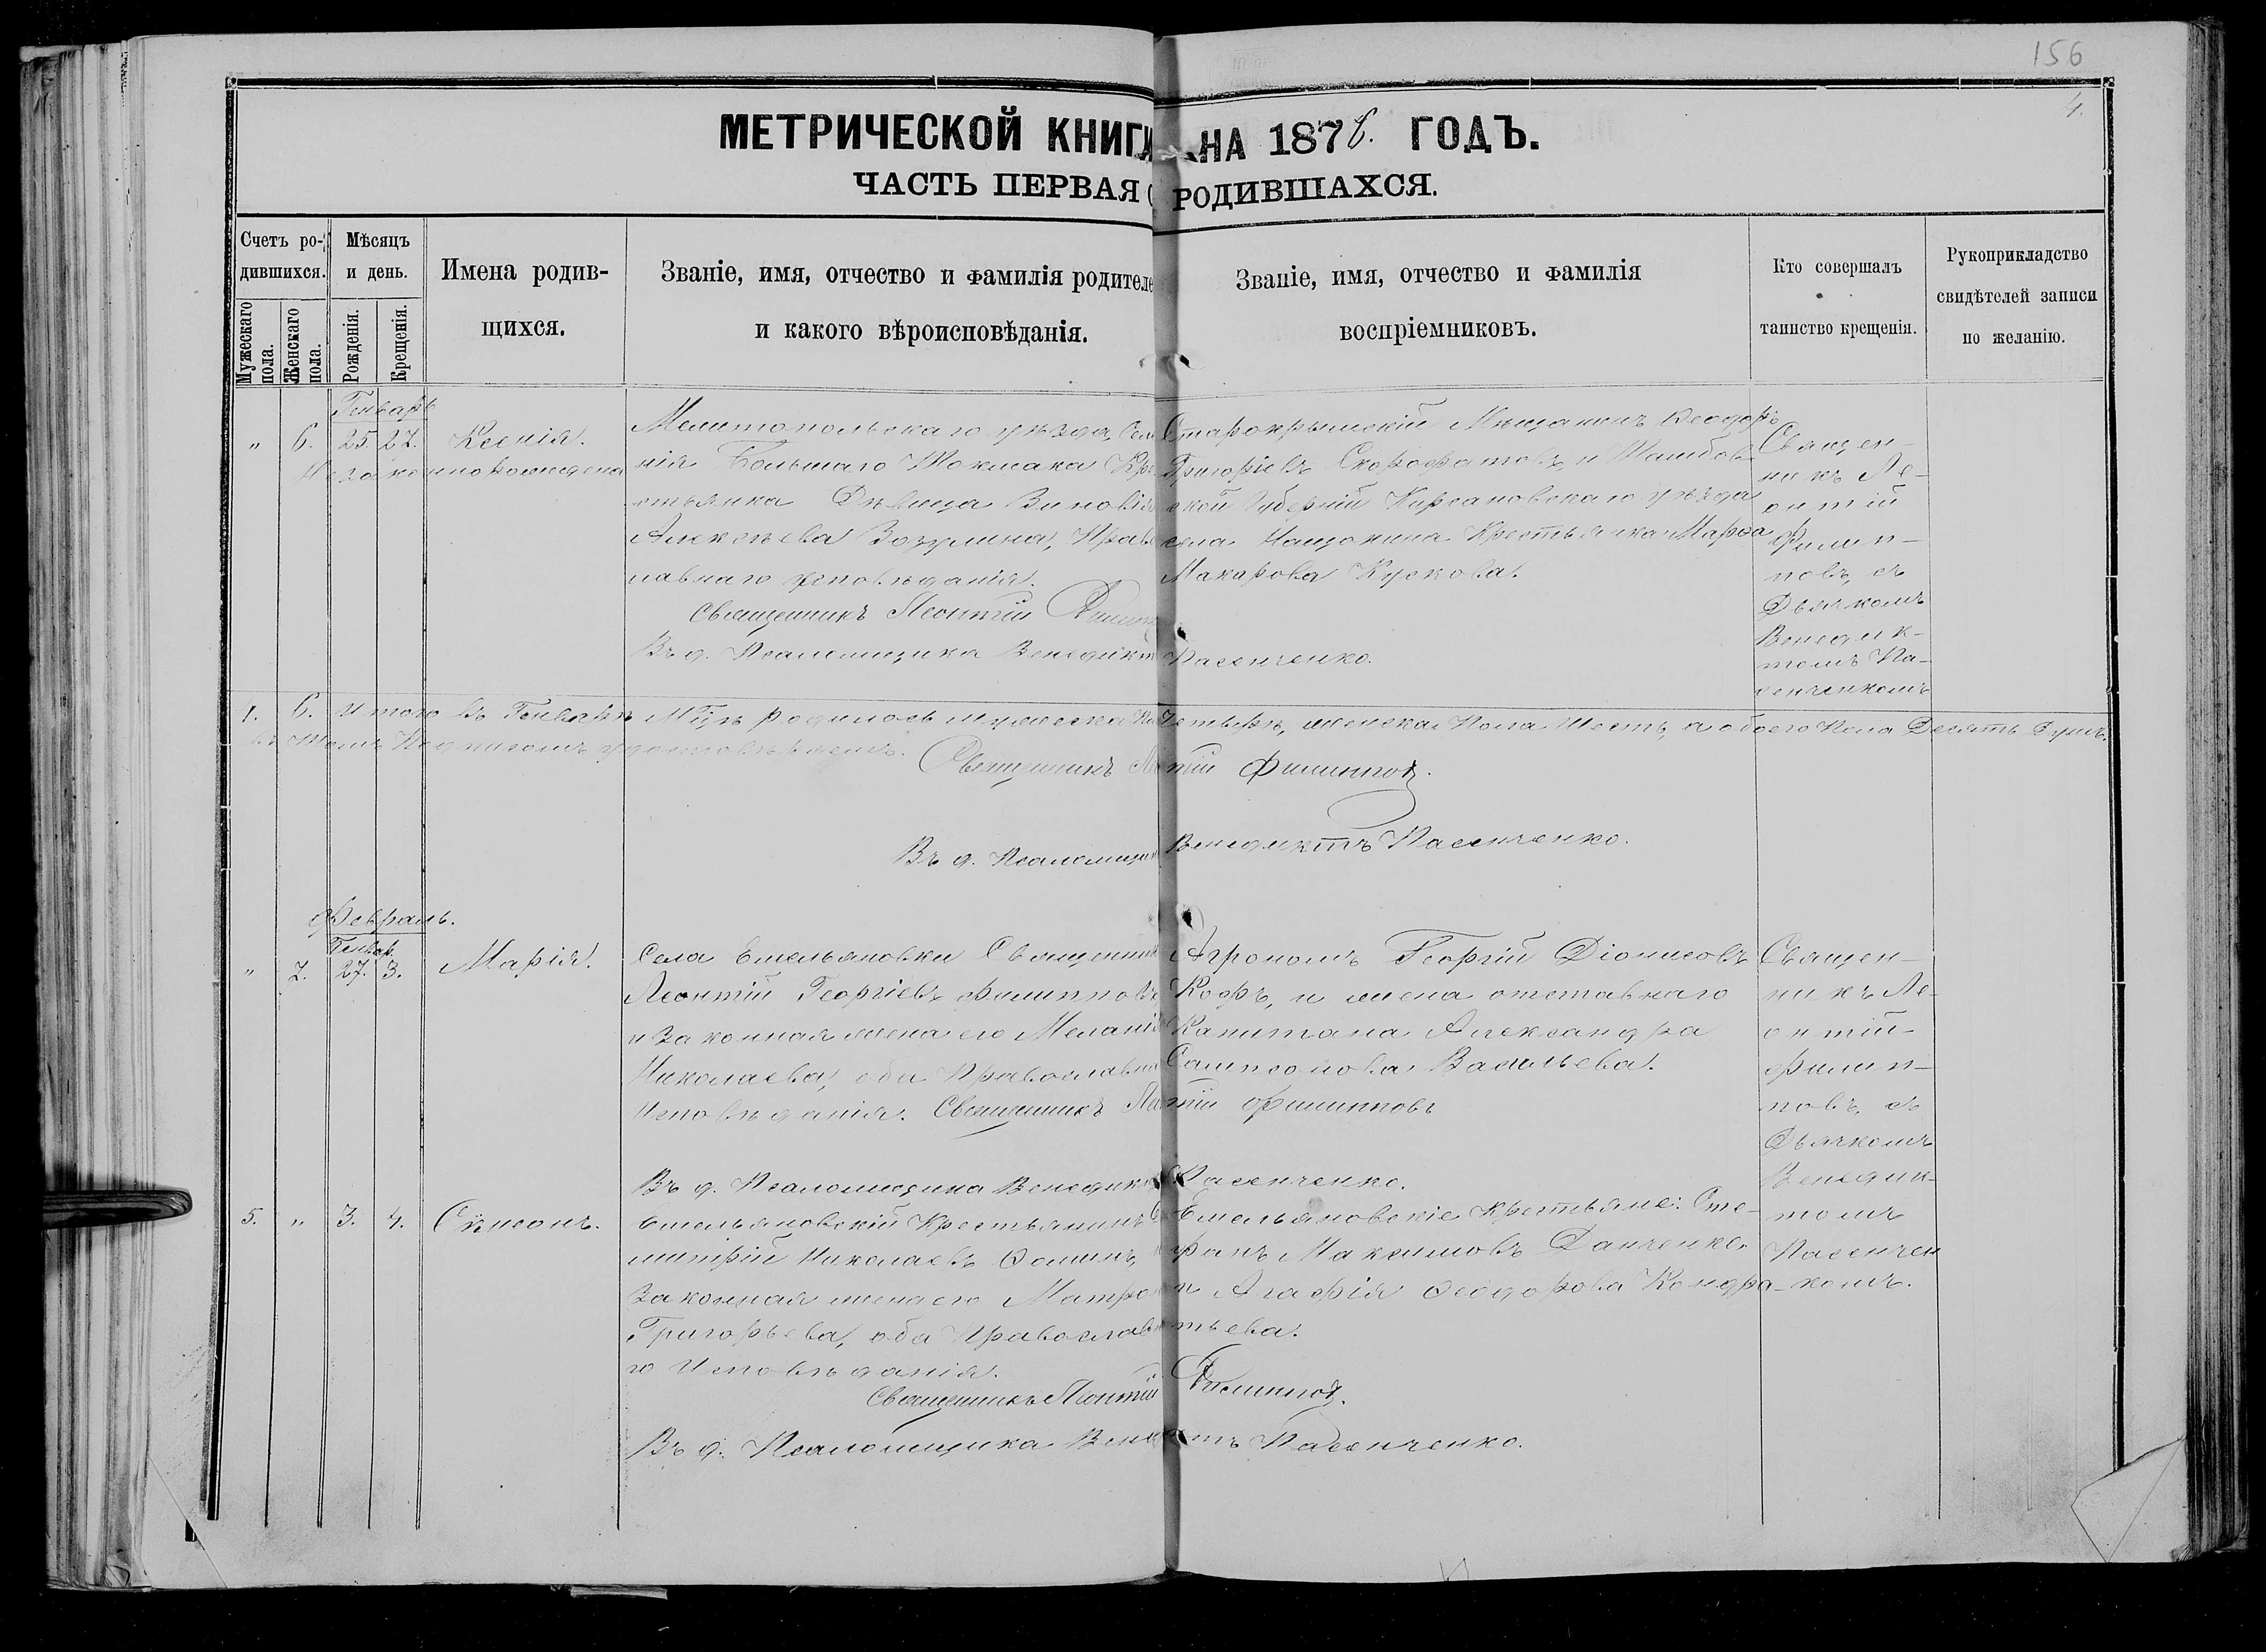 156
4.
МЕТРИЧЕСКОЙ КНИГИ НА 1878. ГОДЪ.
ЧАСТЬ ПЕРВАЯ О РОДИВШАХСЯ.
Счетъ ро-
дившихся.
Мужескаго пола.
Женскаго пола.
Мѣсяцъ
и день.
Рожденія.
Крещенія.
Имена родив-
щихся.
Званіе, имя, отчество и фамилія родителе
и какого вѣроисповѣданія.
Званіе, имя, отчество и фамилія
воспріемниковъ.
Кто совершалъ
таинство крещенія.
Рукоприкладство
свидѣтелей записи
по желанію.
Генварь
" 6. 25 27. Ксенія.
Незаконнорождена
Мелитопольскаго уѣзда, Сел
нія Большаго Токмака Кре
стьянка Дѣвица Зиновія
Алексѣева Возулина, Прав
лавнаго исповѣданія.
Священникъ Леонтій Филип
Въ д. Псаломщика Венедикт
Старокрымскій Мѣщанинъ Ѳеодоръ
Григорьевъ Скорофатовъ и Тамбов
ской Губерніи Кирсановскаго уѣзда
села Нащокина Крестьянка Марѳа
Макарова Кускова.
Пасенченко.
Священ-
никъ Ле-
онтій
Филип-
повъ, съ
Дьячкомъ
Венедик-
томъ Па-
сенченкомъ
4. 6. Итого въ Генварѣ М-цѣ родилось мужеска По Четыре, женска Пола Шесть, а обоего Пола Десять Душъ.
въ томъ Подписомъ удостовѣряемъ.
Священникъ Леонтій Филиппов.
Въ д. Псаломщик Венедиктъ Пасенченко.
Февраль.
Генвар.
" 7. 27. 3. Марія.
Села Емельяновки Священник
Леонтій Георгіевъ Филипповъ
и Законная жена его Меланія
Николаева, оба Православна
Исповѣданія. Священникъ Леонтій Филипповъ
Въ д. Псаломщика Венедикт Пасенченко.
Агрономъ Георгій Діонисовъ
Кофъ, и жена отставнаго
Капитана Александра
Сампсонова Васильева.
Священ-
никъ Ле-
онтій
Филип-
повъ, съ
Дьячкомъ
Венедик-
томъ
Пасенчен
комъ.
5. " 3. 4. Сѵмеонъ.
Емельяновскій Крестьянинъ
митрій Николаевъ Ѳоминъ,
Законная жена его Матро
Григорьева, оба Православн
го Исповѣданія.
Священникъ Леонтій Филиппов.
Въ д. Псаломщика Венедиктъ Пасенченко.
Емельяновскіе Крестьяне: Сте-
фанъ Максимовъ Данченко
и Агафія Ѳеодорова Кондра-
тьева.